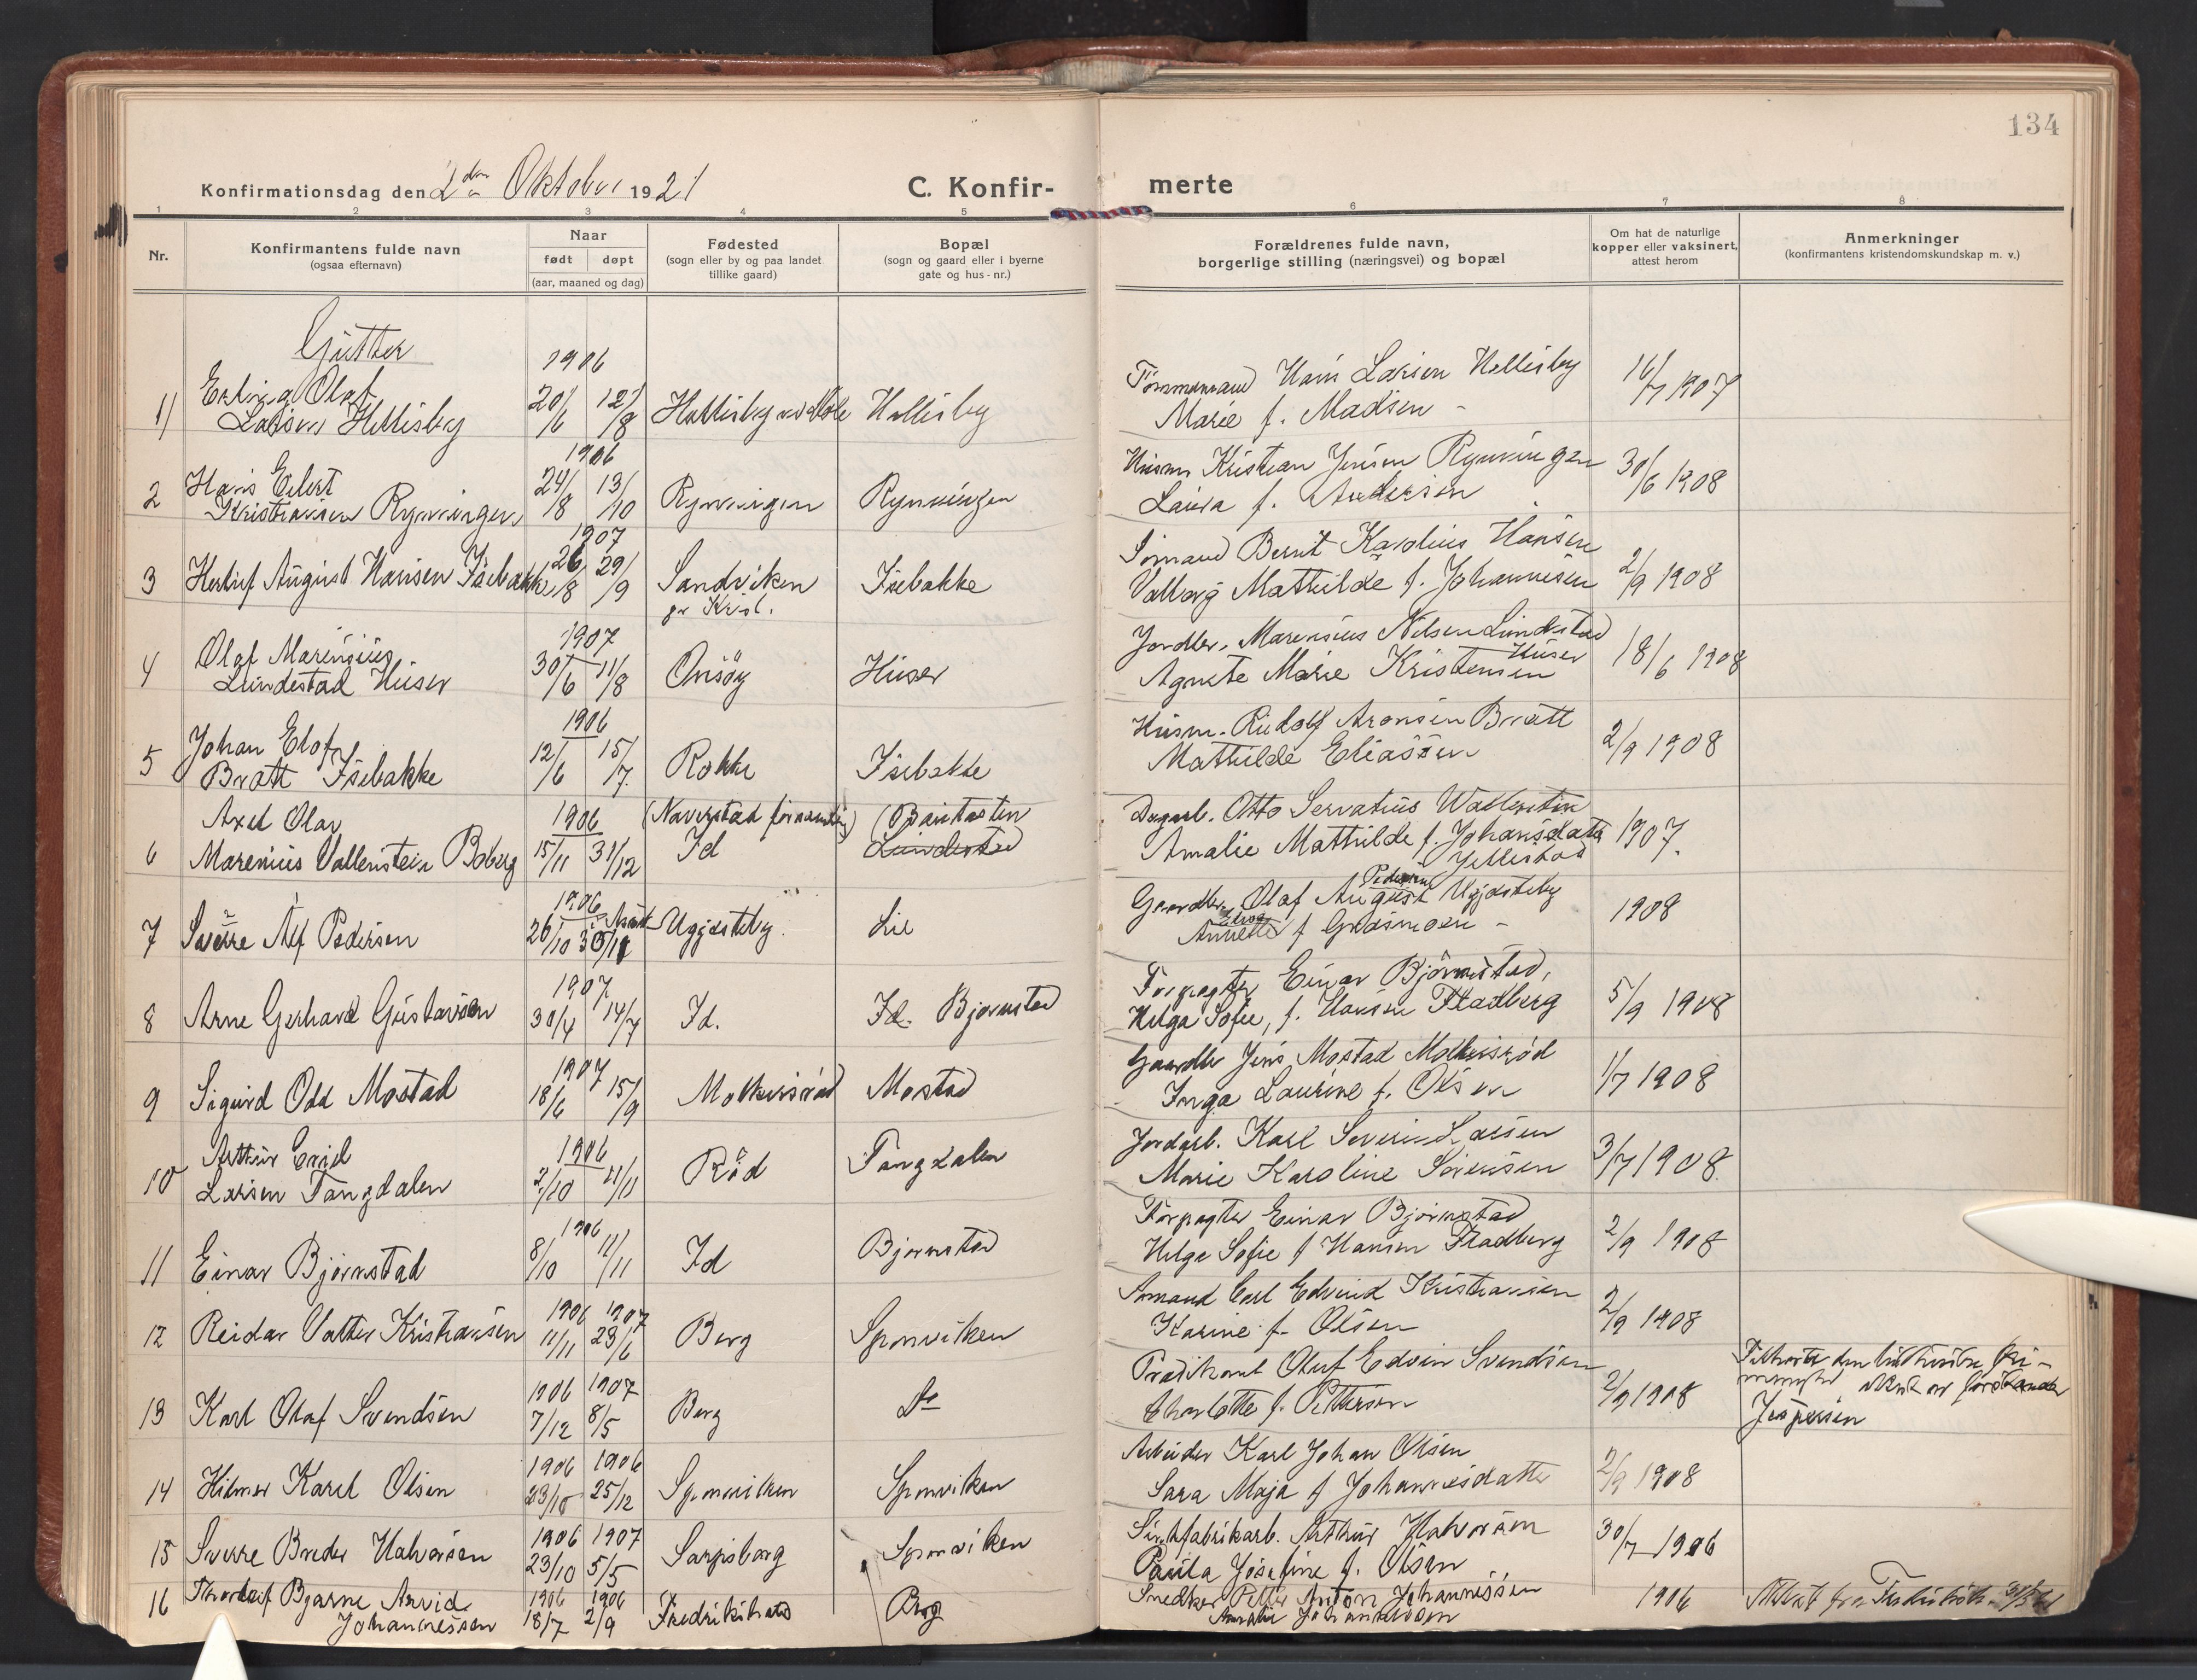 134
Konfirmationsdag den 2den Oktober 1921
C. Konfirmerte
1 2 3 4 5 6 7 8
Nr.
Konfirmantens fulde navn
(ogsaa efternavn)
Naar
født døpt
(aar, maaned og dag)
Fødested
(sogn eller by og paa landet
tillike gaard)
Bopæl
(sogn og gaard eller i byerne
gate og hus-nr.)
Forældrenes fulde navn,
borgerlige stilling (næringsvei) og bopæl
Om hat de naturlige
kopper eller vaksinert,
attest herom
Anmerkninger
(konfirmantens kristendomskundskap m. v.)
Gutter
1906
1) Erling Olaf
Larsen Hellisby 20/6 12/8 Hellisby Hellisby
Tømmermand Hans Larsen Hellisby 16/7 1907
Marie f. Madsen -
1906
2 Hans Eilert
Kristiansen Rynningen 24/8 13/10 Rynningen Rynningen
Husm. Kristian Jensen Rynningen 30/6 1908
Laura f. Andersen
1907
3 Herlief August Hansen Isebakke 26/8 29/9 Sandviken Isebakke
pr Krist.
Sømand Bernt Karolius Hansen
Valborg Mathilde f. Johannesen 2/9 1908
1907
4 Olaf Marensius
Lundestad Huser 30/6 11/8 Onsøy Huser
Jordbr. Marensius Nilsen Lundestad
Huser
Agnete Marie Kristensen 18/6 1908
1906
5 Johan Elof
Bratt Isebakke 12/6 15/7 Rokke Isebakke
Husm. Rudolf Aronsen Bratt
Mathilde Eliassen 2/9 1908
Axel Olav 1906 (Naverstad
6 Marenius Vallenstein Boberg 15/11 31/12 Id Lundestad
Dagarb. Otto Servatius Wallentin
Amalie Mathilde f. Johansdatter 1907
7 Sverre Alf Pedersen 1906 26/10 Ugjesteby Lie
Gaardbr. Olaf August Pedersen Ugjesteby 1908
Annette f
1907
8 Arne Gerhard Gustavsen 30/4 14/7 Id. Id. Bjørnstad
Forpagter Einar Bjørnstad,
Helga Sofie, f. Hansen Fladberg 5/9 1908
1907
9 Sigurd Odd Mostad 18/6 15/9 Mostad
Gaardbr Jens Mostad
Inga Laurine f. Olsen 1/7 1908
1906
10 Arthur Emil
Larsen Tangdalen 2/10 11/11 Rød Tangdalen
Jordarb. Karl Severin Larsen
Marie Karoline Sørensen 3/7 1908
1906
11 Einar Bjørnstad 8/10 11/11 Id Bjørnstad
Forpagter Einar Bjørnstad
Helga Sofie f Hansen Fladberg 2/9 1908
1906 1907
12 Reidar Valter Kristiansen 11/11 23/6 Berg Sponviken
Sømand Carl Edvind Kristiansen
Karine f. Olsen 2/9 1908
1906 1907
13 Karl Olaf Svendsen 7/12 8/5 Berg Do
Prædikant Oluf Edvin Svendsen
Charlotte f. Pettersen 2/9 1908
Tilhører den lutherske fri-
menighet
Jespersen
1906 1906
14 Hilmer Karel Olsen 23/10 25/12 Sponviken Sponviken
Arbeider Karl Johan Olsen
Sara Maja f Johannesdatter 2/9 1908
1906 1907
15 Sverre Breder Halvorsen 23/10 5/5 Sarpsborg Sponviken
Arthur Halvorsen
Paula Josefine f. Olsen 30/7 1906
1906 1906
16 Thorleif Bjarne Arvid
Johannessen 18/7 2/9 Fredrikstad Berg
Snedker Petter Anton Johannessen 1906
Amalie Johannessen